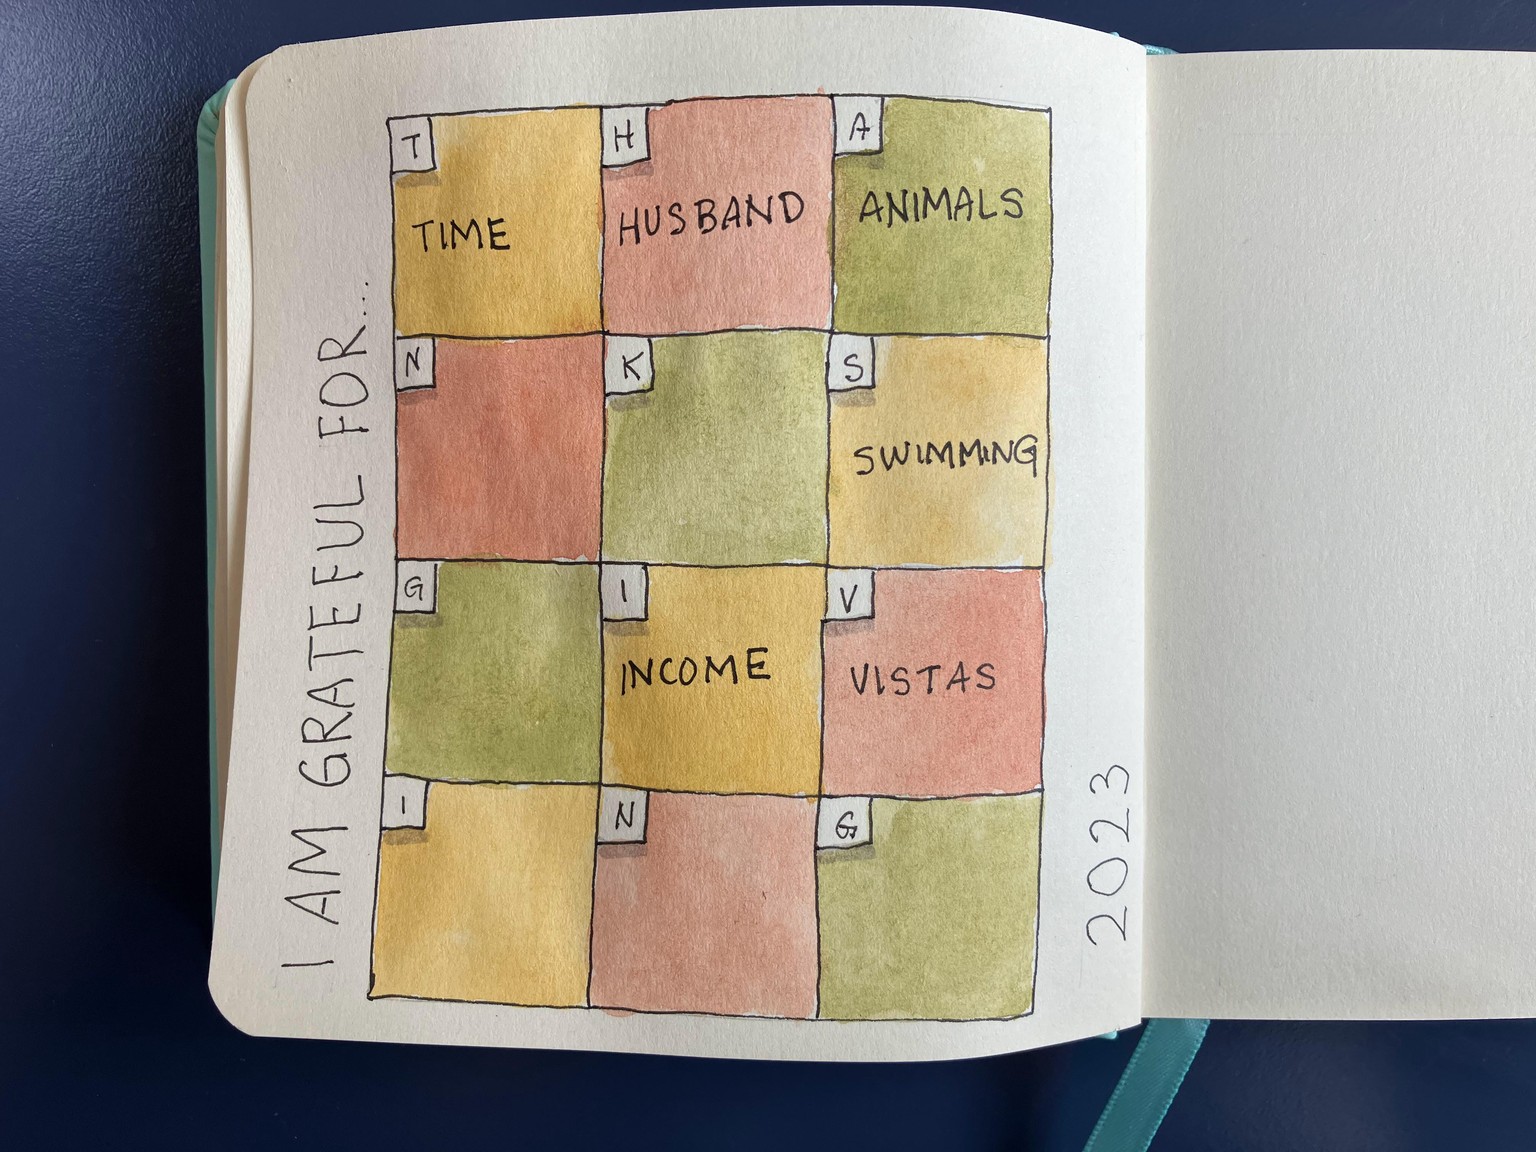 I AM GRATEFUL FOR...
T
TIME
H
HUSBAND
A
ANIMALS
N
K
S
SWIMMING
G
I
INCOME
V
VISTAS
I
N
G
2023